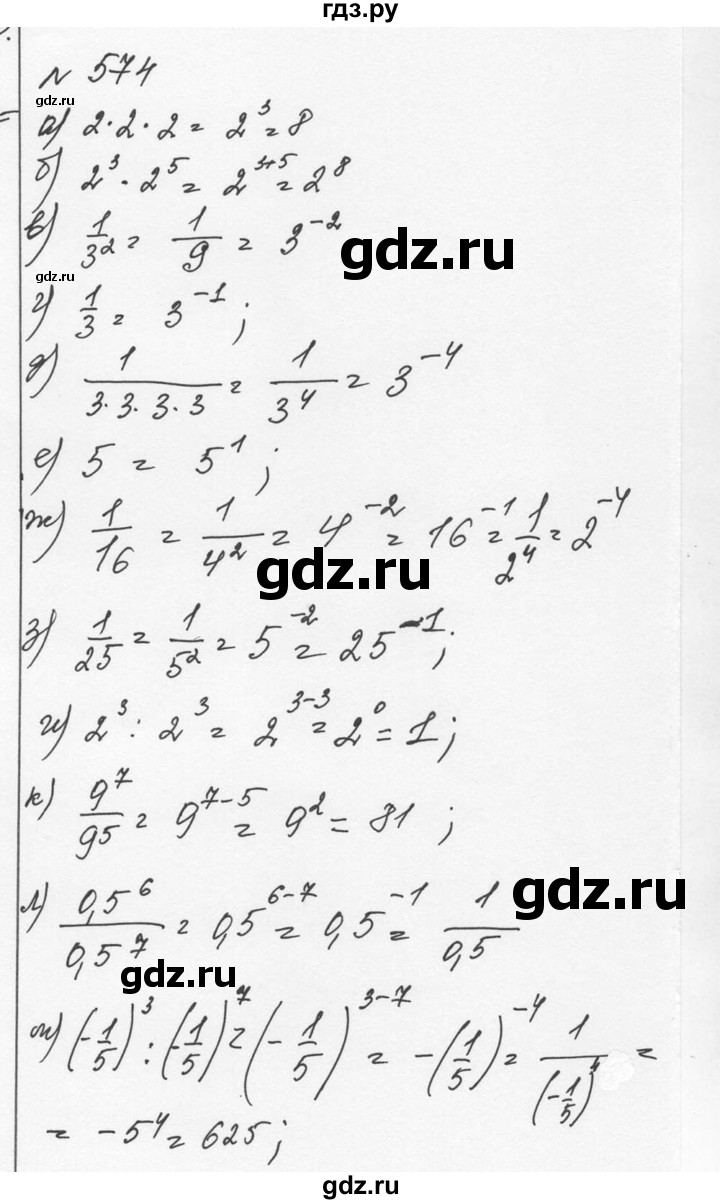 гдз.ру
№ 574
gdz.ru
а) 2·2·2 = 2³ = 8
б) 2³ · 2⁵ = 2³⁺⁵ = 2⁸
в) 1/3² = 1/9 = 3⁻²
gdz.ru
gdz.ru
г) 1/3 = 3⁻¹;
д) 1/(3·3·3·3) = 1/3⁴ = 3⁻⁴
е) 5 = 5¹;
ж) 1/16 = 1/4² = 4⁻² = 16⁻¹ = 1/2⁴ = 2⁻⁴
gdz.ru
з) 1/25 = 1/5² = 5⁻² = 25⁻¹;
и) 2³ : 2³ = 2³⁻³ = 2⁰ = 1;
к) 9⁷/95 = 9⁷⁻⁵ = 9² = 81 ;
л) 0,5⁶/0,5⁷ = 0,5⁶⁻⁷ = 0,5⁻¹ = 1/0,5
gdz.ru
gdz.ru
м) (-1/5)³ : (-1/5)⁷ = (-1/5)³⁻⁷ = -(1/5)⁻⁴ = 1/(-1/5)⁴ =
= -5⁴ = 625;
gdz.ru